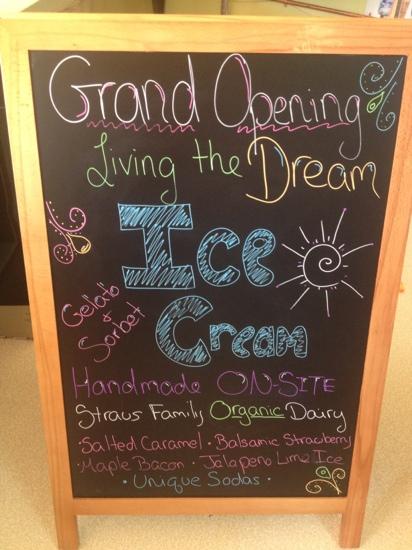 Grand Opening
Living the Dream
Ice
Cream
Gelato
&
Sorbet
Handmade ON-SITE
Straus Family Organic Dairy
·Salted Caramel · Balsamic Strawberry
·Maple Bacon · Jalapeno Lime Ice
· Unique Sodas ·